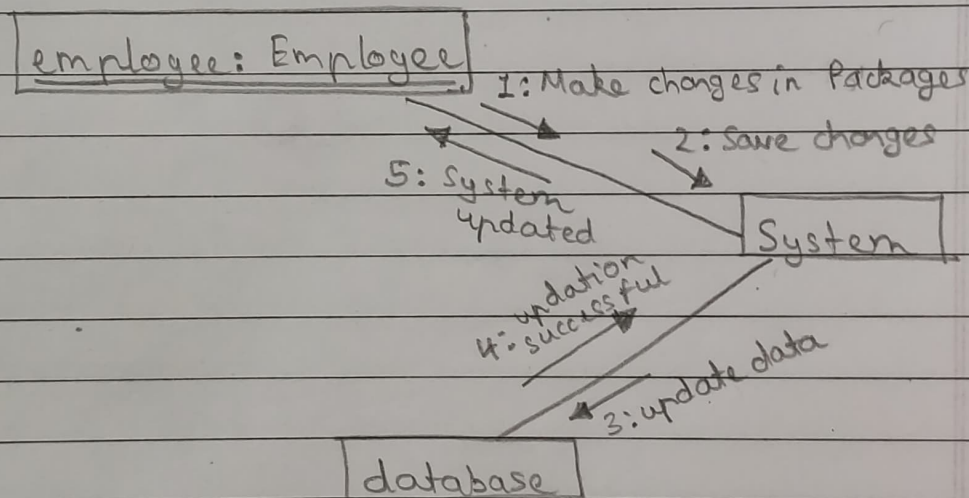 employee: Employee
1: Make changes in Packages
2: Save changes
5: System
updated
System
4: updation
successful
3: update data
database